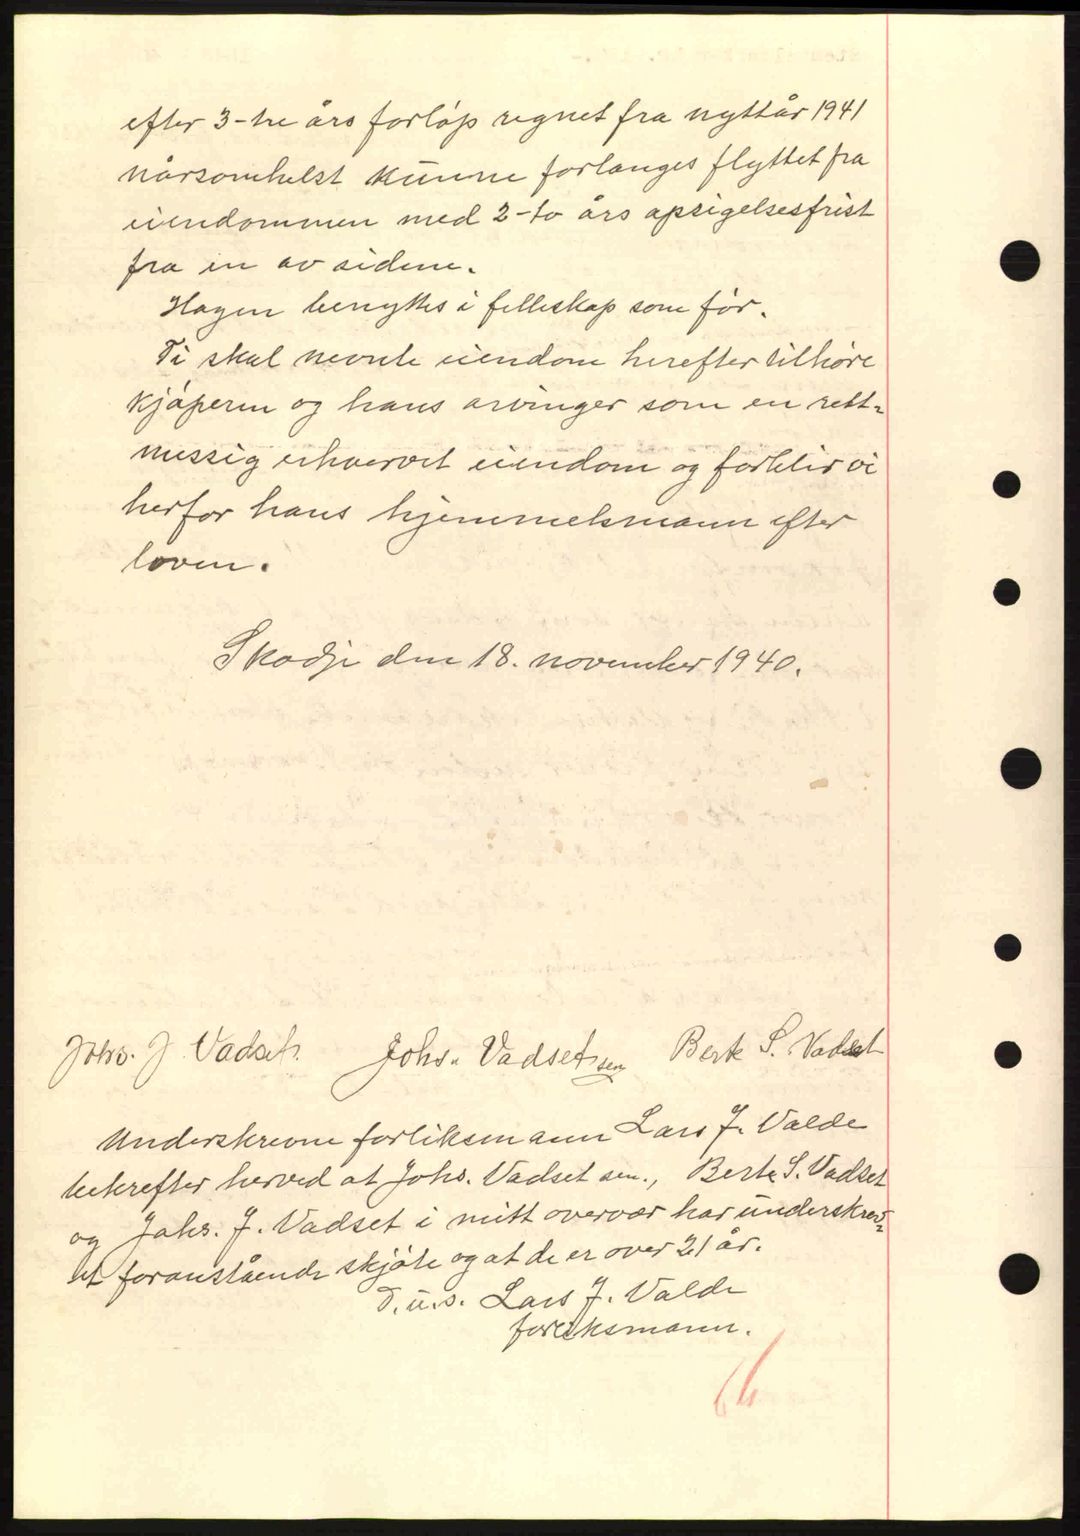 efter 3-tre års forløp regnet fra nyttår 1941
nårsomhelst kunne forlanges flyttet fra
eiendommen med 2-to års opsigelsesfrist
fra en av sidene.
Hagen benyttes i felleskap som før.
Ti skal nevnte eiendom herefter tilhøre
kjøperen og hans arvinger som en rett-
messig erhvervet eiendom og forblir vi
herfor hans hjemmelsmann efter
loven.
Skodje den 18. november 1940.
Johs. J. Vadset. Johs. Vadset sen Berte S. Vadset
Underskrevne forliksmann Lars J. Valde
bekrefter herved at Johs. Vadset sen., Berte S. Vadset
og Johs. J. Vadset i mitt overvær har underskrev-
et foranstående skjøte og at de er over 21 år.
D.u.s. Lars J. Valde
forliksmann.